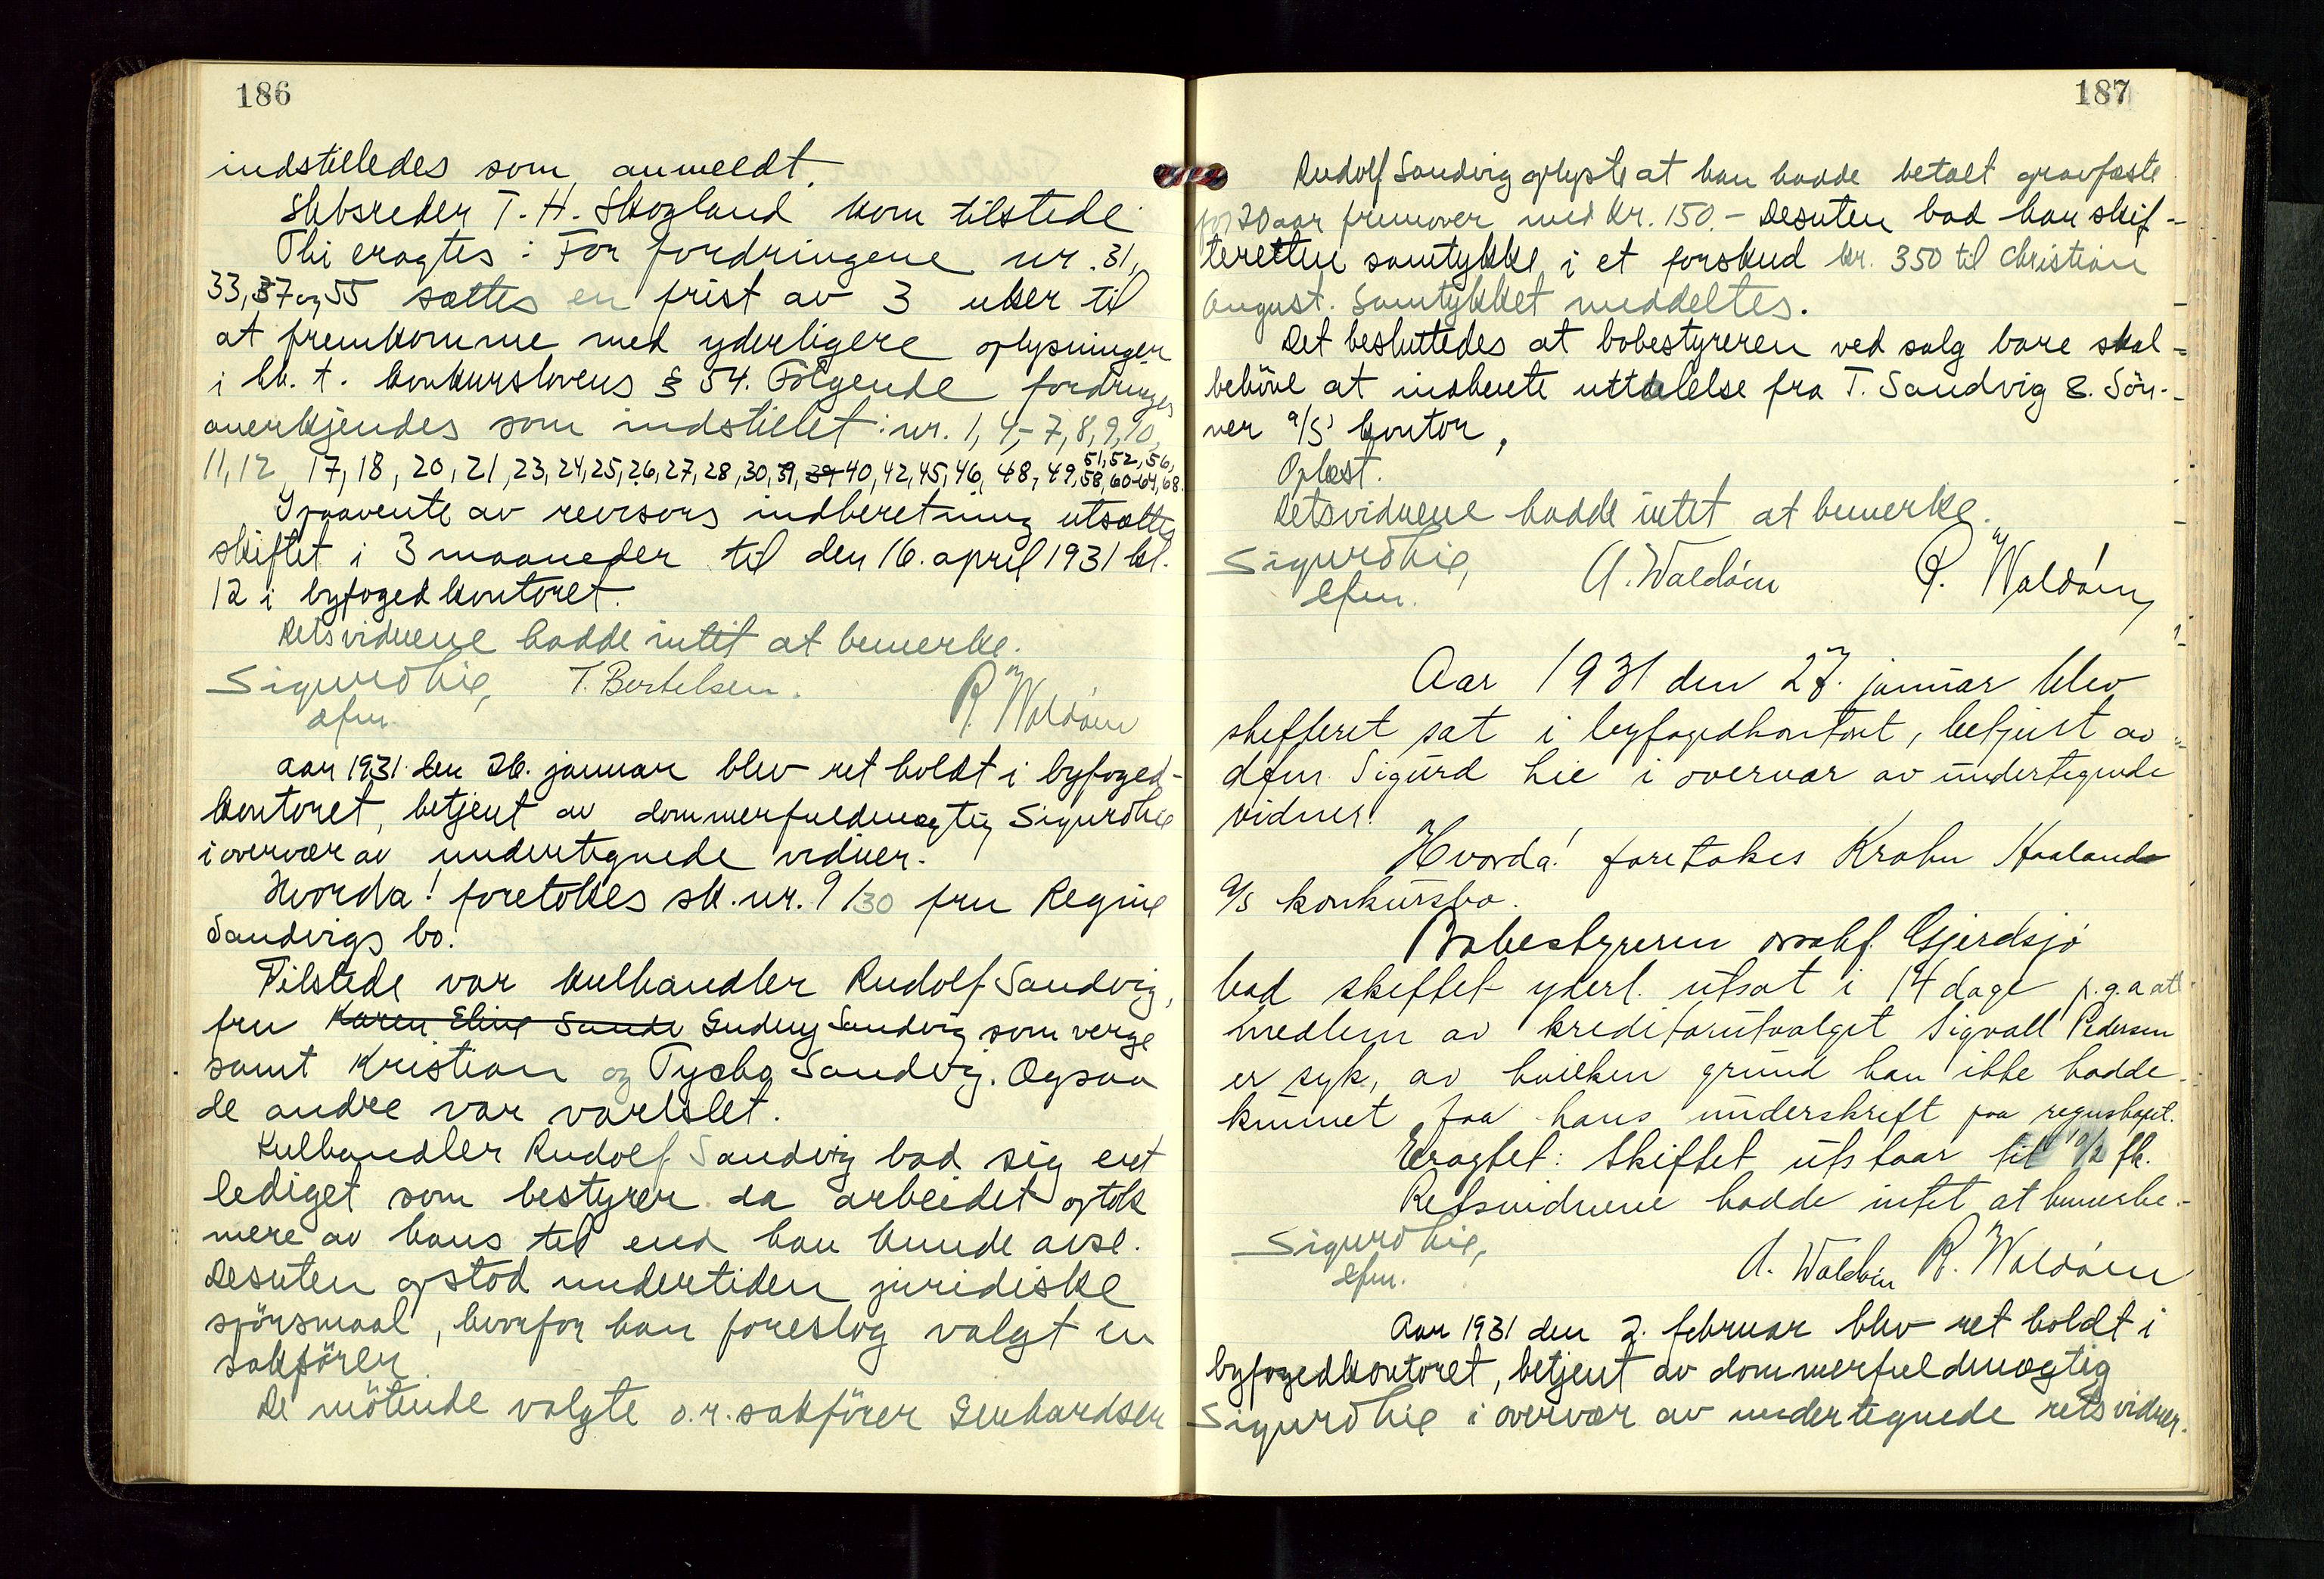 186
indstilledes som anmeldt.
Skibsreder T. H. Skogland kom tilstede
Thi eragtes: For fordringene nr. 31,
33, 37 og 55 sættes en frist av 3 uker til
at fremkomme med yderligere oplysninger
i hh. t. konkurslovens § 54. Følgende fordringer
anerkjendes som indstillet: nr. 1, 4,- 7, 8, 9, 10,
11, 12, 17, 18, 20, 21, 23, 24, 25, 26, 27, 28, 30, 39, 39 40, 42, 45, 46, 48, 49, 51, 52, 56, 58, 60-64, 68.
I paavente av revisors indberetning utsættes
skiftet i 3 maaneder til den 16. april 1931 kl.
12 i byfogedkontoret.
Retsvidnene hadde intet at bemerke.
Sigurd Lie, T. Bertelsen. R. Waldám
dfm.
Aar 1931 den 26. januar blev ret holdt i byfoged-
kontoret, betjent av dommerfuldmægtig Sigurd Lie
i overvær av undertegnede vidner.
Hvorda! foretokes sk. nr. 9/30 fru Regine
Sandvigs bo.
Tilstede var kulhandler Rudolf Sandvig,
fru Karen Eline Sande Gudny Sandvig som verge
samt Kristian og Tycho Sandvig. Ogsaa
de andre var varslet.
Kulhandler Rudolf Sandvig bad sig ent
lediget som bestyrer da arbeidet optok
mere av hans tid end han kunde avse.
Desuten opstod undertiden juridiske
spörsmaal, hvorfor han foreslog valgt en
sakförer.
De mötende valgte o.r.sakförer Lenhardsen
187
Rudolf Sandvig oplyste at han hadde betalt gravfæste
for 20 aar fremover med kr. 150.- Desuten bad han skif-
teretten samtykke i et forskud kr. 350 til Christian
August. Samtykket meddeltes.
Det besluttedes at bobestyreren ved salg bare skal
behöve at indhente uttalelse fra T. Sandvig & Sön-
ner a/s' kontor.
Oplæst.
Retsvidnene hadde intet at bemerke.
Sigurd Lie, A. Waldám R. Waldám
dfm.
Aar 1931 den 27. januar blev
skifteret sat i byfogedkontoret, betjent av
dfm. Sigurd Lie i overvær av undertegnede
vidner.
Hvorda! foretokes Krohn Haaland
a/s konkursbo.
Bobestyreren o.r.sakf. Gjerdsjö
bad skiftet yderl. utsat i 14 dage p.g.a at
medlem av kreditorutvalget Sigvall Pedersen
er syk, av hvilken grund han ikke hadde
kunnet faa hans underskrift paa regnskapet.
Eragtet: Skiftet utstaar til 10/2 fk.
Retsvidnene hadde intet at bemerke.
Sigurd Lie, A. Waldám R. Waldám
dfm.
Aar 1931 den 2. februar blev ret holdt i
byfogedkontoret, betjent av dommerfuldmægtig
Sigurd Lie i overvær av undertegnede retsvidner.